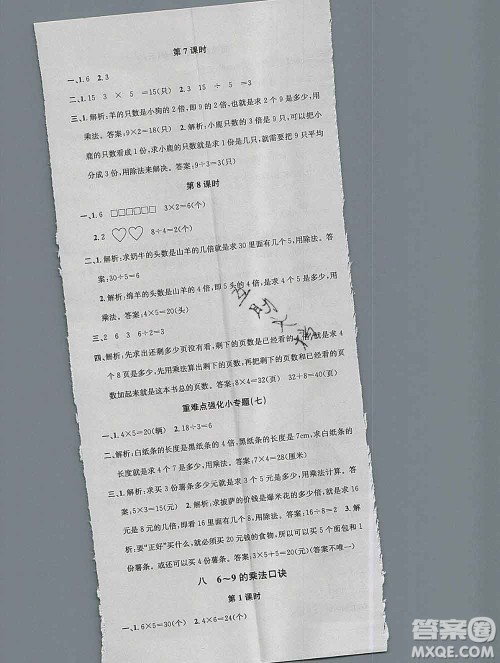 第7课时
一、1. 6 2. 3
二、1. 15 3 × 5 =15(只) 2. 3 15 ÷ 5 =3
三、1. 解析:羊的只数是小狗的2倍,即9的2倍,也就是求2个9是多少,用
乘法。答案:9×2=18(只) 2. 解析:小鹿的只数是9只,以小松
鹿的只数看成1份,求小鹿的只数也就是求
分成3份,用除法来解决。答案:9÷3=3(只)
第8课时
一、1. 6 □□□□□□ 3×2=6(个)
2. 2 ♡♡ 8÷4=2(个)
二、1. 解析:求奶牛的头数是山羊的几倍就是求30里面有几个5,用除法。答
案:30÷5=6
2. 解析:绵羊的头数是山羊的4倍,即5头的4倍,是求4个5是多少,用
乘法。答案:4×5=20(头)
三、2 6 3 6÷2=3
四、解析:先求出还剩多少页没有看,剩下的页数是已经看的4倍,就是求4
个8页是多少,用乘法计算出剩下的页数。再把剩下的页数和已经看的页
数加起来,就是这本书总的页数。答案:8×4=32(页) 32+8=40(页)
重难点强化小专题(七)
一、1. 4×5=20(辆) 2. 18÷3=6
二、1. 解析:白纸条的长度是黑纸条的4倍,黑纸条的长度是7cm,求白纸条的
长度就是求4个7是多少,用乘法。答案:4×7=28(厘米)
三、1. 解析:求买3份薯条多少钱就是求3个5是多少,用乘法计算。答
案:5×3=15(元) 2. 解析:求披萨的价钱是爆米花的多少倍,就是求16
元是8元的几倍,即看16里面有几个8,用除法。答案:16÷8=2 3. 解
析:要“正好”买什么,就要买够20元钱的食物,所以可以买5个面包和1
份薯条。答案:3×5+5=20(元)(答案不唯一)
八 6~9的乘法口诀
第1课时
一、1. 6×5=30(个) 2. 4×6=24(个)
答案圈
MXQE.COM